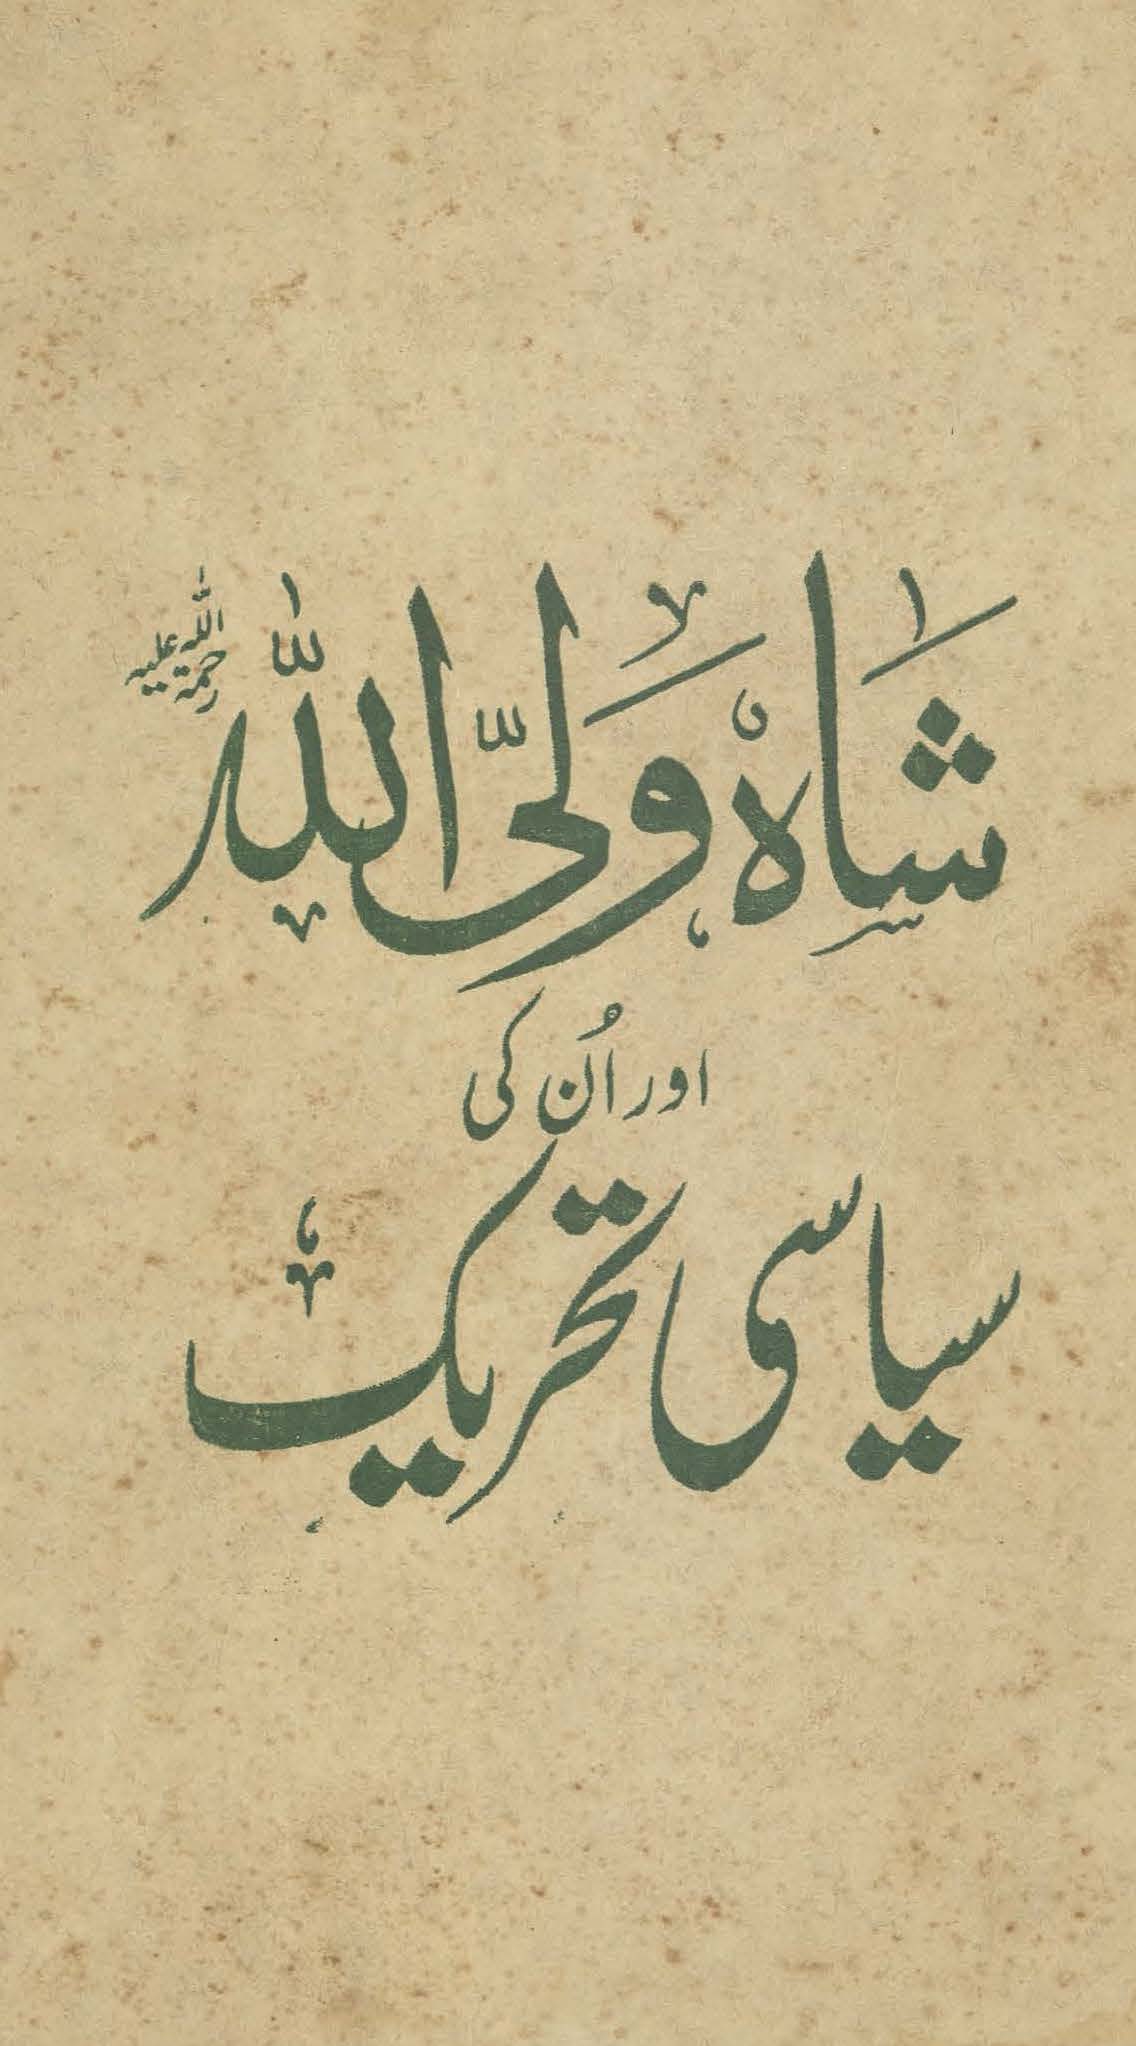 شاہ ولیّ اللہ رحمۃ اللہ علیہ
اور اُن کی
سیاسی تحریک